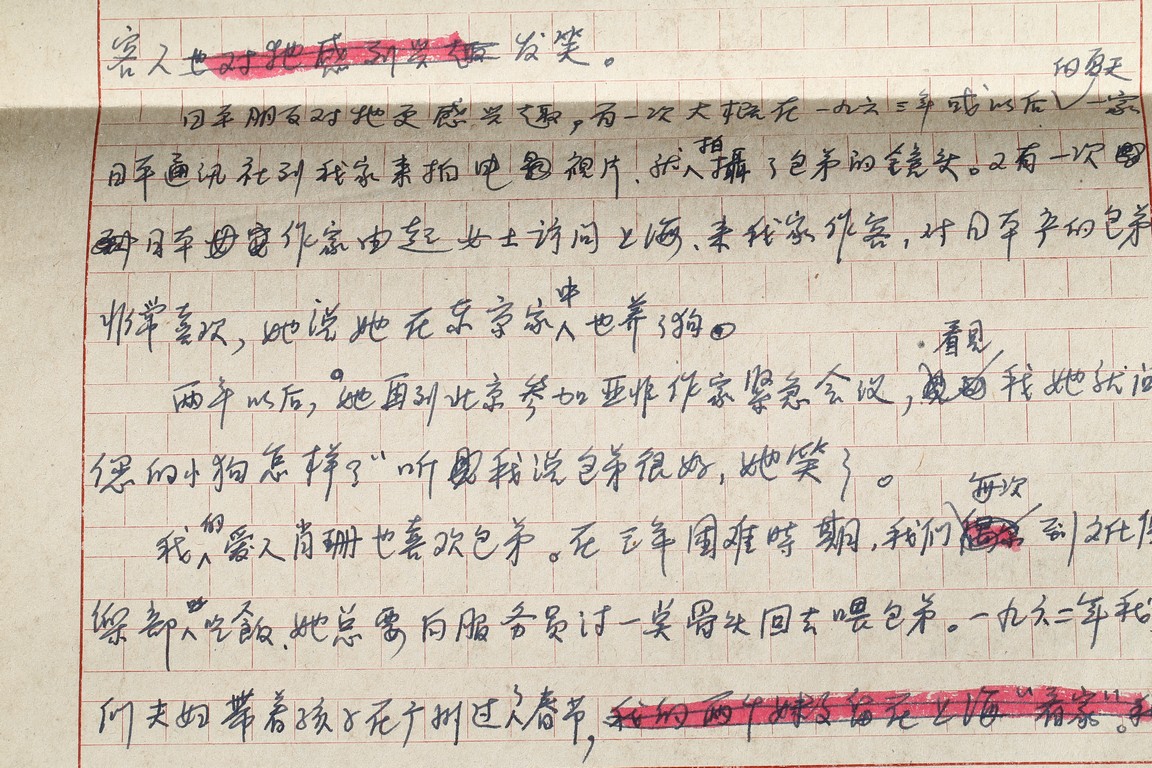 客人也对牠感到兴趣发笑。
的夏天
日本朋友对牠更感兴趣，有一次大概在一九六三年或以后一家
日本通讯社到我家来拍电视片，就拍攝了包弟的镜头。又有一次
日本作家由起女士访问上海，来我家作客，对日本产的包弟
非常喜欢，她说她在东京家中也养了狗。
看见
两年以后，她再到北京参加亚非作家紧急会议，我她就问
您的小狗怎样？”听我说包弟很好，她笑了。
每次
我的爱人肖珊也喜欢包弟。在三年困难時期，我们到文化俱
樂部吃飯，她总要向服务员讨一奌骨头回去喂包弟。一九六二年我
们夫妇带着孩子在广州过了春节，我的两个妹妹留在上海“看家”。